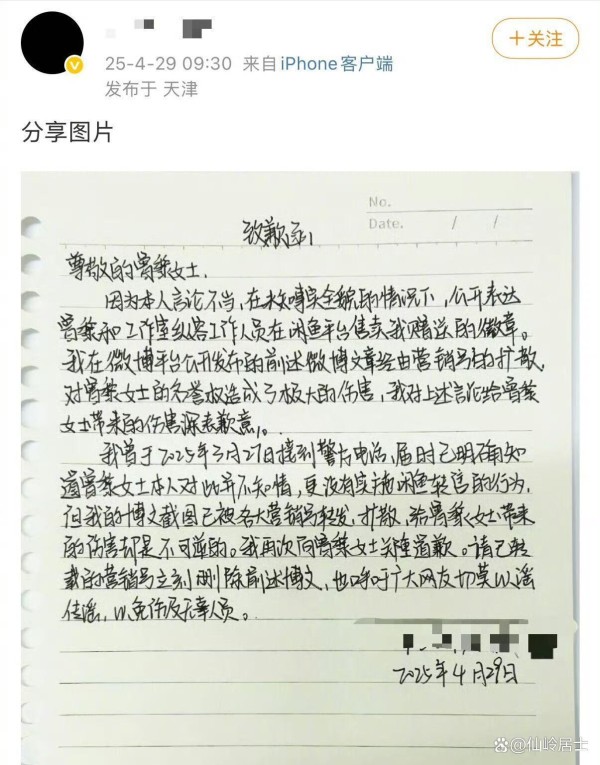 +关注
25-4-29 09:30 来自 iPhone客户端
发布于 天津
分享图片
No.
Date. / /
致歉函
尊敬的曾黎女士.
因为本人言论不当,在实全貌的情况下,公开表达
曾黎和工作室纵容工作人员在闲鱼平台售卖我赠送的徽章。
我在微博平台公开发布的前述微博文章经由营销号的扩散,
对曾黎女士的名誉权造成了极大的伤害,我对上述言论给曾黎
女士带来的伤害深表歉意。
我曾于2025年3月27日接到警方电话,届时已明确知
道曾黎女士本人对此并不知情,更没有实施闲鱼转售的行为,
但我的博文截图已被各大营销号转发、扩散,给曾黎女士带来
的伤害却是不可逆的。我再次向曾黎女士郑重道歉。请已转
载的营销号立刻删除前述博文,也呼吁广大网友切莫以谣
传谣,以免伤及无辜人员。
2025年4月29日
百 @仙岭居士